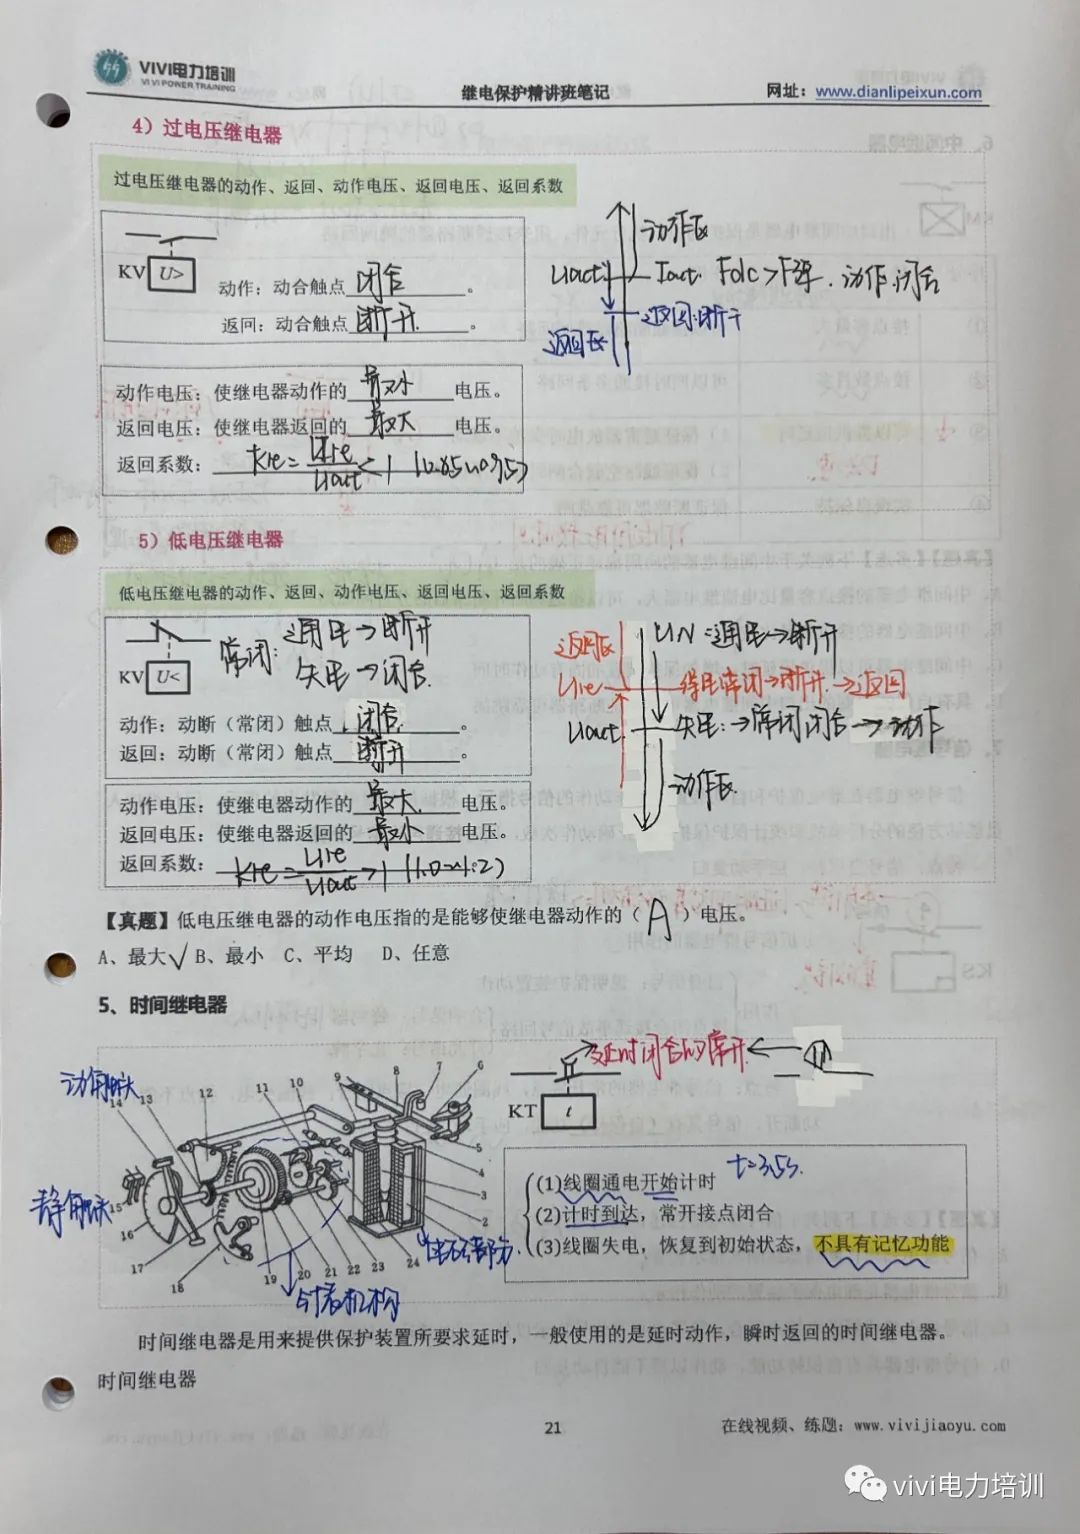 VIVI电力培训
VI VI POWER TRAINING
继电保护精讲班笔记
网址：www.dianlipeixun.com
4）过电压继电器
过电压继电器的动作、返回、动作电压、返回电压、返回系数
KV U>
动作：动合触点 闭合 。
返回：动合触点 断开 。
动作区
Uact Fact. Fdc>F弹. 动作.闭合
返回.断开
返回区
动作电压：使继电器动作的 最小 电压。
返回电压：使继电器返回的 最大 电压。
返回系数： Kre=Ure/Uact<1 (0.85~0.95)
5）低电压继电器
低电压继电器的动作、返回、动作电压、返回电压、返回系数
常闭：通电→断开
失电→闭合.
KV U<
动作：动断（常闭）触点 闭合 。
返回：动断（常闭）触点 断开 。
返回区
UN：通电→断开
Ure 得电常闭→断开.→返回
Uact 失电：→常闭闭合→动作
动作区.
动作电压：使继电器动作的 最大 电压。
返回电压：使继电器返回的 最小 电压。
返回系数： Kre=Ure/Uact>1 (1.0~1.2)
【真题】低电压继电器的动作电压指的是能够使继电器动作的（ A ）电压。
A、最大√ B、最小 C、平均 D、任意
5、时间继电器
动触头
静触头
电磁部分
钟表机构
1 2 3 4 5 6 7 8 9 10 11 12 13 14 15 16 17 18 19 20 21 22 23 24
延时闭合的常开.
KT t
t=3.5s.
(1)线圈通电开始计时
(2)计时到达，常开接点闭合
(3)线圈失电，恢复到初始状态，不具有记忆功能
时间继电器是用来提供保护装置所要求延时，一般使用的是延时动作，瞬时返回的时间继电器。
时间继电器
21
在线视频、练题：www.vivijiaoyu.com
vivi电力培训